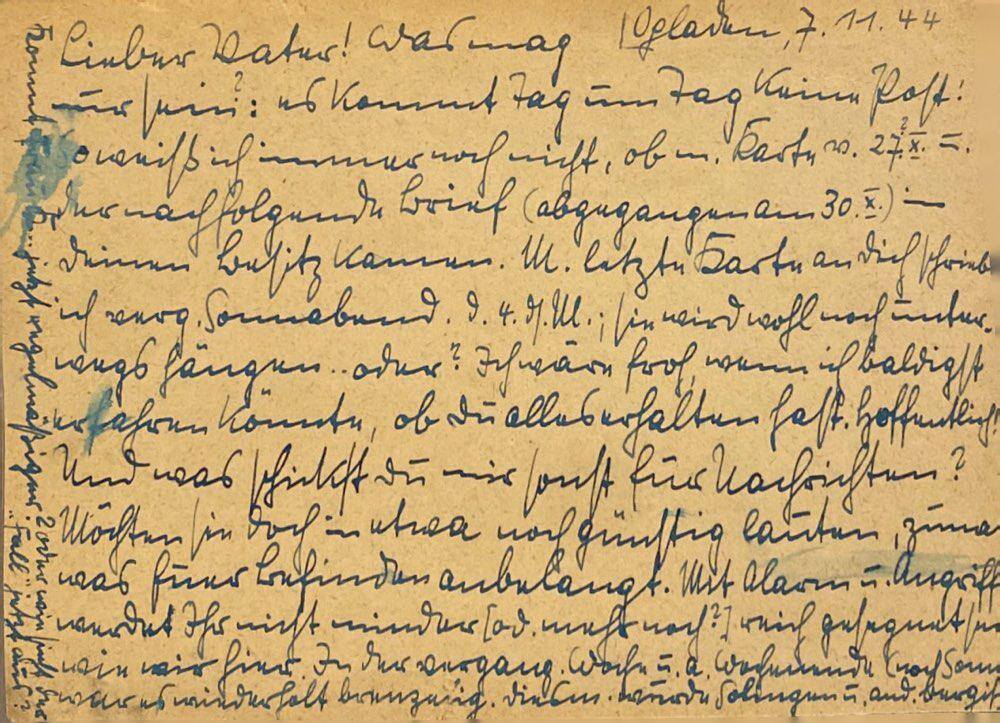 Lieber Vater! Was mag Opladen, 7. 11. 44
nur sein?: es kommt Tag um Tag keine Post!
So weiß ich immer noch nicht, ob m. Karte v. 27.?X. u.
der nachfolgende Brief (abgegangen am 30. X.) in
Deinen Besitz kamen. M. letzte Karte an Dich schrieb
ich verg. Sonnabend. d. 4. ds. M.; sie wird wohl noch unter-
wegs hängen .. oder? Ich wäre froh, wenn ich baldigst
erfahren könnte, ob Du alles erhalten hast. Hoffentlich!
Und was schickst Du mir sonst für Nachrichten?
Möchten sie doch in etwa noch günstig lauten, zuma
was Euer Befinden anbelangt. Mit Alarm u. Angriff
werdet Ihr nicht minder [od. mehr noch?] reich gesegnet
wie wir hier. In der vergang. Woche u. a. Wochenende (noch Sonn
war es wiederholt brenzelig. Dies m. wurde Solingen u. and. Bergis
Kommt jetzt regelmäßiger? oder wie sieht der
"Fall" jetzt aus?